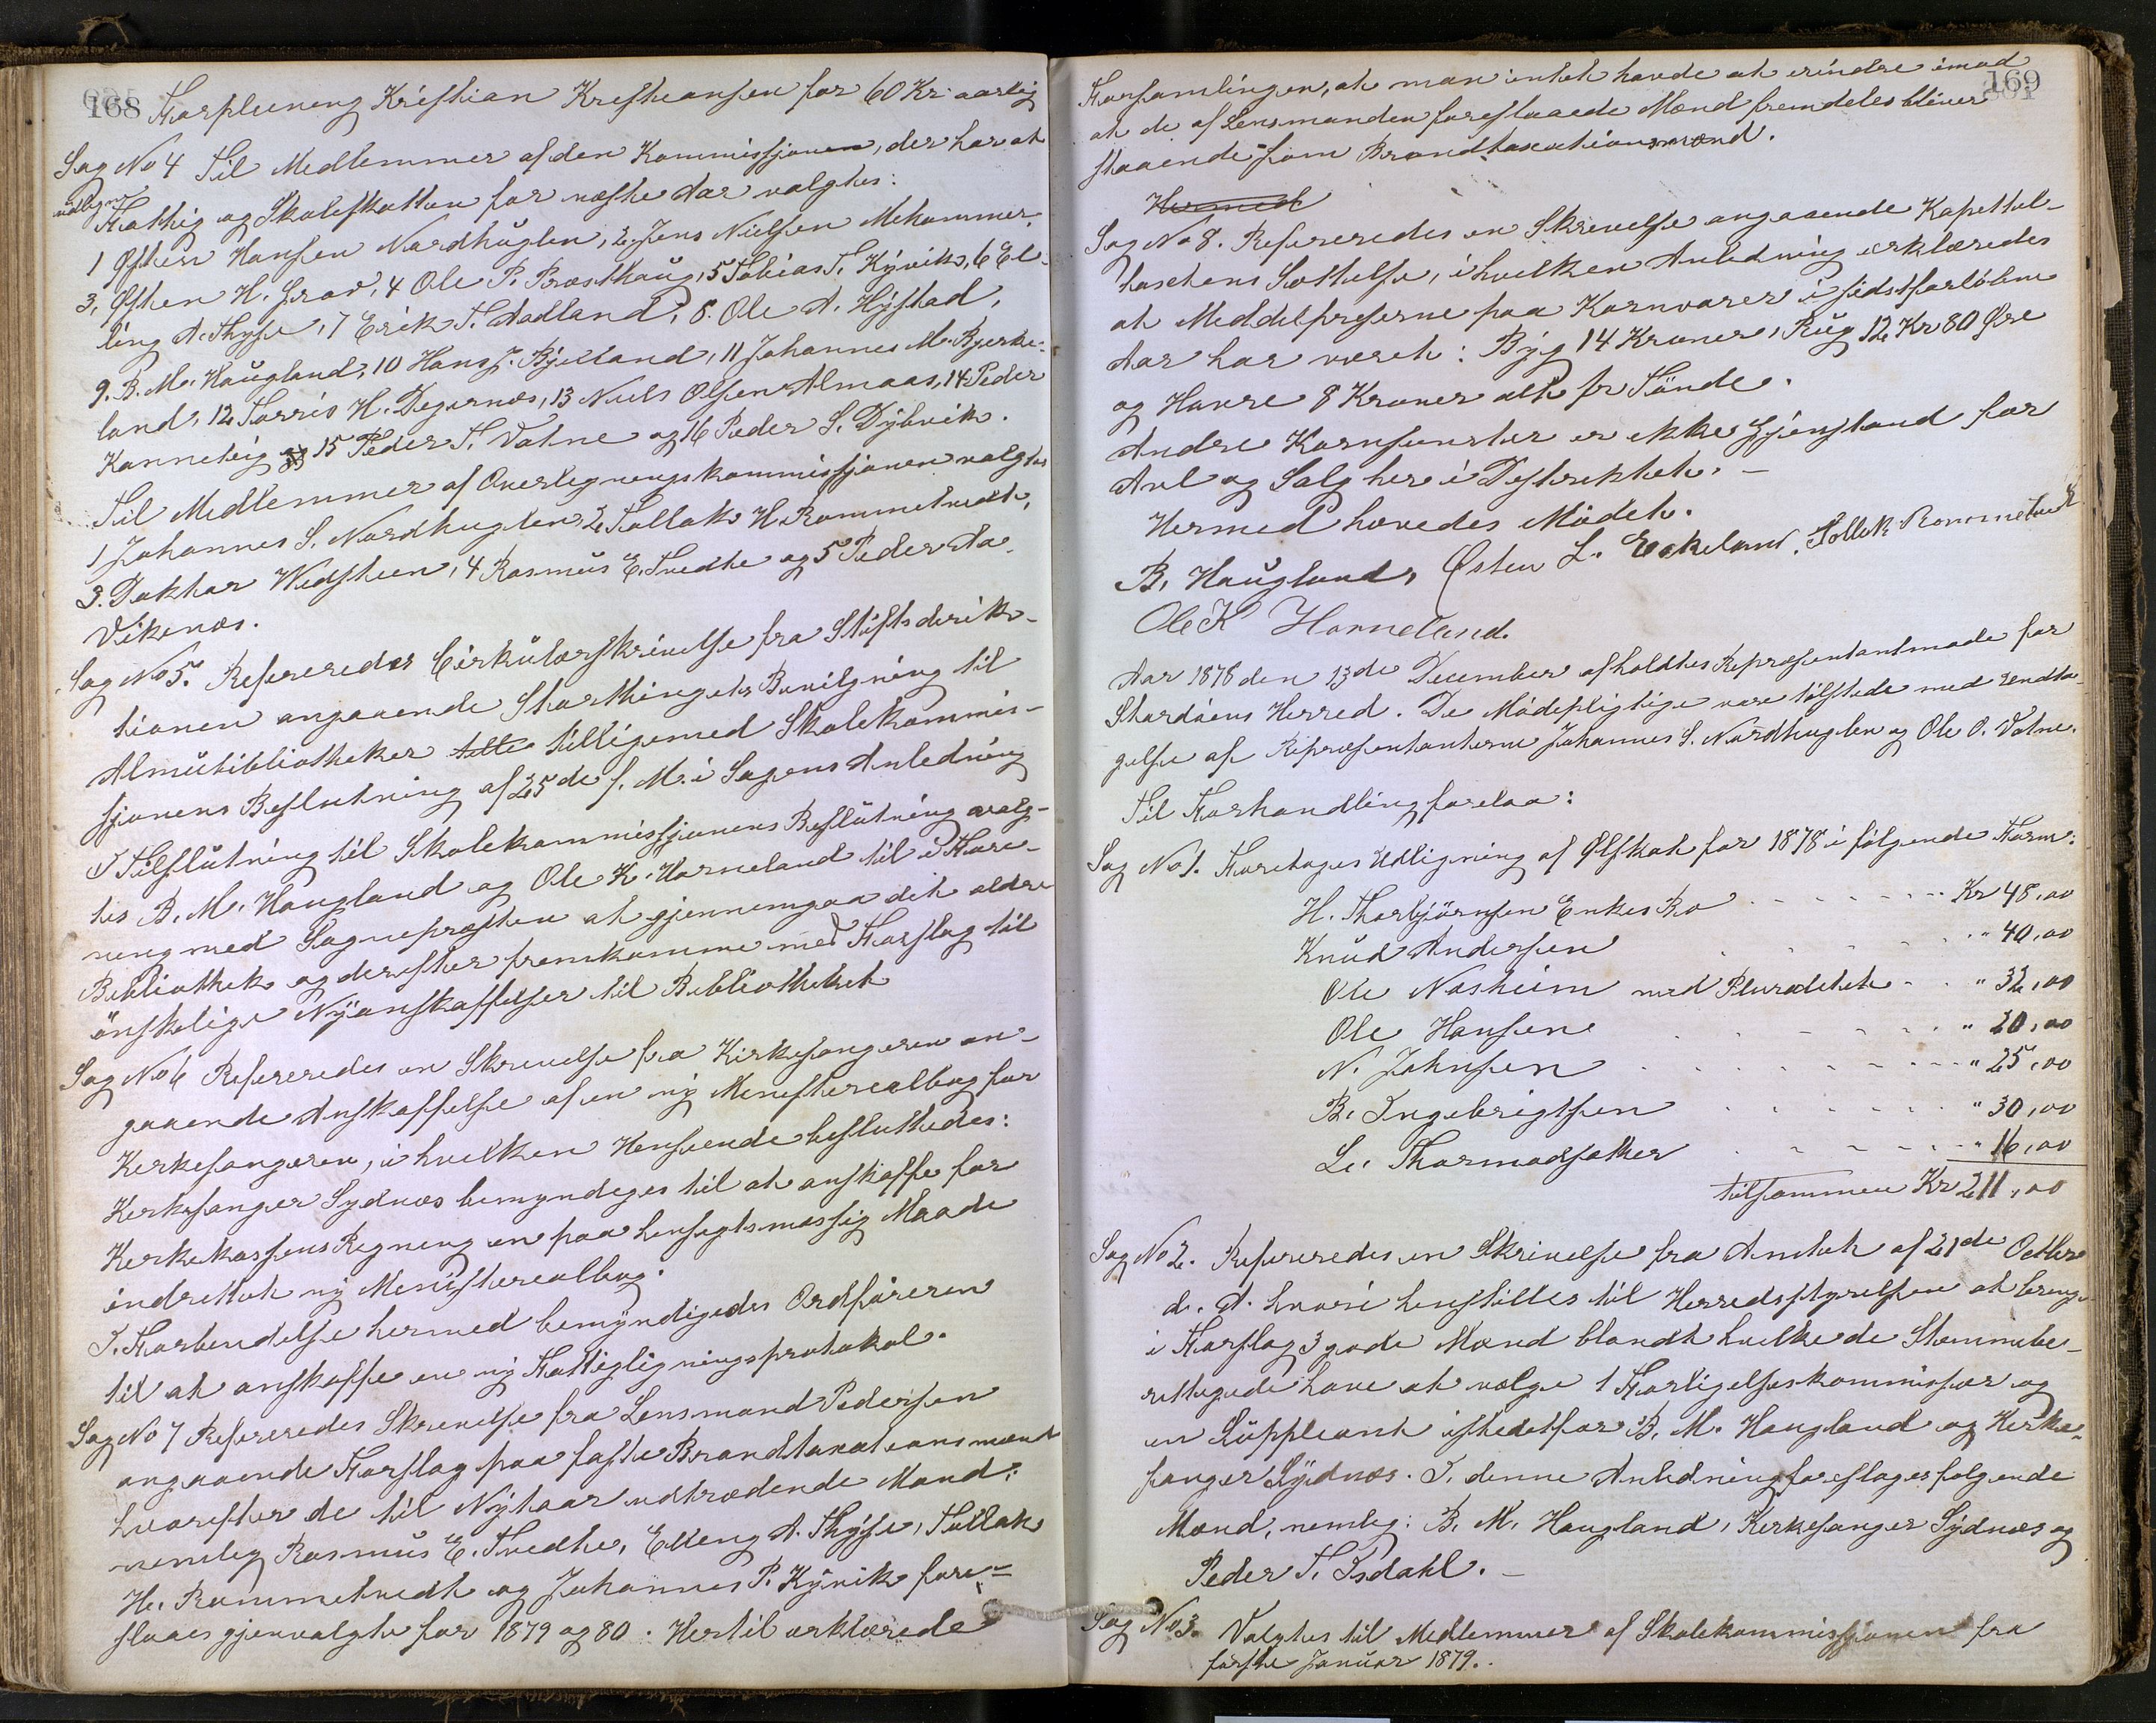 168 Forpleining Kristian Kristiansen for 60 Kr. aarlig
Sag No 4 Til Medlemmer af den Kommissjonen, der har at
udligne
Fattig og Skoleskatten for næste Aar valgtes:
1 Østen Hansen Nordhuglen, 2, Jens Nielsen Mehammer
3, Østen H. Grov, 4 Ole P. Brosthaug, 5 Tobias T. Kyvik, 6 El-
ling A. Thyse, 7 Erik T. Aadland, 8. Ole A. Hystad,
9. B. M. Haugland, 10 Hans J. Bjelland, 11 Johannes M. Bjerke-
land, 12 Torris H. Digernæs, 13 Niels Olsen Almaas, 14 Peder
Kanneteig og 15 Peder T. Vatne og 16 Peder S. Dybvik.
Til Medlemmer af Overligningskommissjonen valgtes
1 Johannes S. Nordhuglen, 2, Tollak H. Rommetvedt,
3. Doktor Widsteen, 4 Rasmus E. Tvedte og 5 Peder Aa.
Vikenæs.
Sag No 5. Refereredes Cirkulærskrivelse fra Stiftsdirek-
tionen angaaende Storthingets Bevilgning til
Almubibliotheker tette tilligemed Skolekommis-
sjonens Beslutning af 25de f. M. i Sagens Anledning
I Tilslutning til Skolekommissjonens Beslutning valg-
tes B. M. Haugland og Ole K. Horneland til i Fore-
ning med Sognepresten at gjennemgaa det ældre
Bibliothek og derefter fremkomme med Forslag til
ønskelige Nyanskaffelser til Bibliotheket
Sag No 6 Refereredes en Skrivelse fra Kirkesangeren an-
gaaende Anskaffelse af en ny Ministerialbog for
Kirkesangeren, i hvilken Henseende besluttedes:
Kirkesanger Sydnæs bemyndiges til at anskaffe for
Kirkekassens Regning en paa hensigtsmæssig Maade
indrettet ny Ministerialbog.
I Forbindelse hermed bemyndigedes Ordføreren
til at anskaffe en ny Fattigligningsprotokol.
Sag No 7 Refereredes Skrivelse fra Lensmand Pedersen
angaaende Forslag paa faste Brandtaxationsmænd
hvorefter de til Nytaar udtrædende Mænd:
nemlig Rasmus E. Tvedte, Elling A. Thyse, Tollak
H. Rommetvedt og Johannes P. Kyvik fore-
slaaes gjenvalgte for 1879 og 80. Hertil erklærede
169
Forsamlingen, at man intet havde at erindre imod
at de af Lensmanden foreslaaede Mænd fremdeles bliver
staaende som Brandtaxationsmænd.
Hermed
Sag No 8. Refereredes en Skrivelse angaaende Kapittel-
taxtens Sættelse, i hvilken Anledning erklæredes
at Middelpriserne paa Kornvarer i sidstforløbne
Aar har været: Byg 14 Kroner, Rug 12 Kr 80 Øre
og Havre 8 Kroner alt pr Tønde.
Andre Kornsorter er ikke Gjenstand for
Avl og Salg her i Distriktet. -
Hermed hævedes Mødet.
B. Haugland, Østen L. Eskeland. Tollak Rommetvedt
Ole K Horneland.
Aar 1878 den 13de December afholdtes Repræsentantmøde for
Stordøens Herred. De Mødepligtige vare tilstede med Undta-
gelse af Repræsentanterne Johannes S. Nordhuglen og Ole O. Vatne.
Til Forhandling forelaa:
Sag No 1. Foretoges Udligning af Ølskat for 1878 i følgende Form:
H. Thorbjørnsen Enkes Bo - - - - - - - Kr 48,00
Knud Andersen - - - - - " 40,00
Ole Nesheim med Pluraliteten - - " 32,00
Ole Hansen - - - - - " 20,00
N. Johnsen - - - - - - - - " 25,00
B. Ingebrigtsen - - - - - " 30,00
L. Thormodsæther - - - - - " 16,00
tilsammen Kr 211,00
Sag No 2. Refereredes en Skrivelse fra Amtet af 21de Octbr
d. A. hvori henstilles til Herredsstyrelsen at bringe
i Forslag 3 gode Mænd blandt hvilke de Stemmebe-
rettigede have at vælge 1 Forligelseskommissær og
en Suppleant istedetfor B. M. Haugland og Kirke-
sanger Sydnæs. I denne Anledning foreslages følgende
Mænd, nemlig: B. M. Haugland, Kirkesanger Sydnæs og
Peder T. Isdahl. -
Sag No 3. Valgtes til Medlemmer af Skolekommissjonen fra
første Januar 1879.